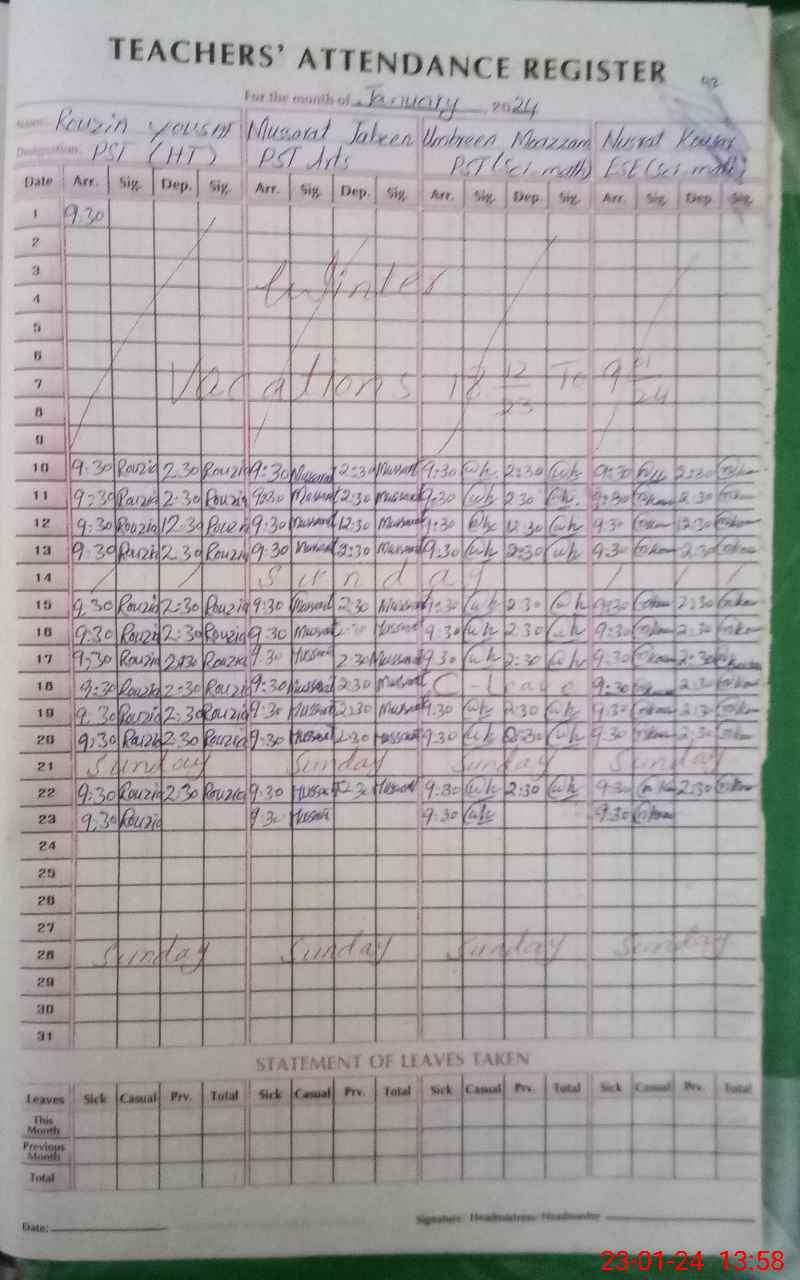 TEACHERS' ATTENDANCE REGISTER
For the month of January 2024
Name: Rouzia Mussarat Jabeen Umbreen Moazzam Nusrat Kousar
Designation: PST (HT) PST Arts PST (Sci. math) ESE (Sci. math)
Date Arr. Sig. Dep. Sig. Arr. Sig. Dep. Sig. Arr. Sig. Dep. Sig. Arr. Sig. Dep. Sig.
1 9.30
2
3 Winter
4
5
6
7 Vacations 18 12/23 To 9 01/24
8
9
10 9:30 Rouzia 2:30 Rouzia 9:30 Mussarat 2:30 Mussarat 9:30 2:30 9:30 2:30
11 9:30 Rouzia 2:30 Rouzia 9:30 Mussarat 2:30 Mussarat 9:30 2:30 9:30 2:30
12 9:30 Rouzia 12:30 Rouzia 9:30 Mussarat 12:30 Mussarat 9:30 12:30 9:30 12:30
13 9:30 Rouzia 2:30 Rouzia 9:30 Mussarat 2:30 Mussarat 9:30 2:30 9:30 2:30
14 Sunday
15 9:30 Rouzia 2:30 Rouzia 9:30 Mussarat 2:30 Mussarat 9:30 2:30 9:30 2:30
16 9:30 Rouzia 2:30 Rouzia 9:30 Mussarat Mussarat 9:30 2:30 9:30 2:30
17 9:30 Rouzia 2:30 Rouzia 9:30 Mussarat 2:30 Mussarat 9:30 2:30 9:30 2:30
18 9:30 Rouzia 2:30 Rouzia 9:30 Mussarat 2:30 Mussarat C-Leave 9:30 2:30
19 9:30 Rouzia 2:30 Rouzia 9:30 Mussarat 2:30 Mussarat 9:30 2:30 9:30 2:30
20 9:30 Rouzia 2:30 Rouzia 9:30 Mussarat 2:30 Mussarat 9:30 2:30 9:30 2:30
21 Sunday Sunday Sunday Sunday
22 9:30 Rouzia 2:30 Rouzia 9:30 Mussarat 2:30 Mussarat 9:30 2:30 9:30 2:30
23 9:30 Rouzia 9:30 Mussarat 9:30 9:30
24
25
26
27
28 Sunday Sunday Sunday Sunday
29
30
31
STATEMENT OF LEAVES TAKEN
Leaves Sick Casual Prv. Total Sick Casual Prv. Total Sick Casual Prv. Total Sick Casual Prv. Total
This Month
Previous Month
Total
Date: Signature: Headmistress/Headmaster
23-01-24 13:58